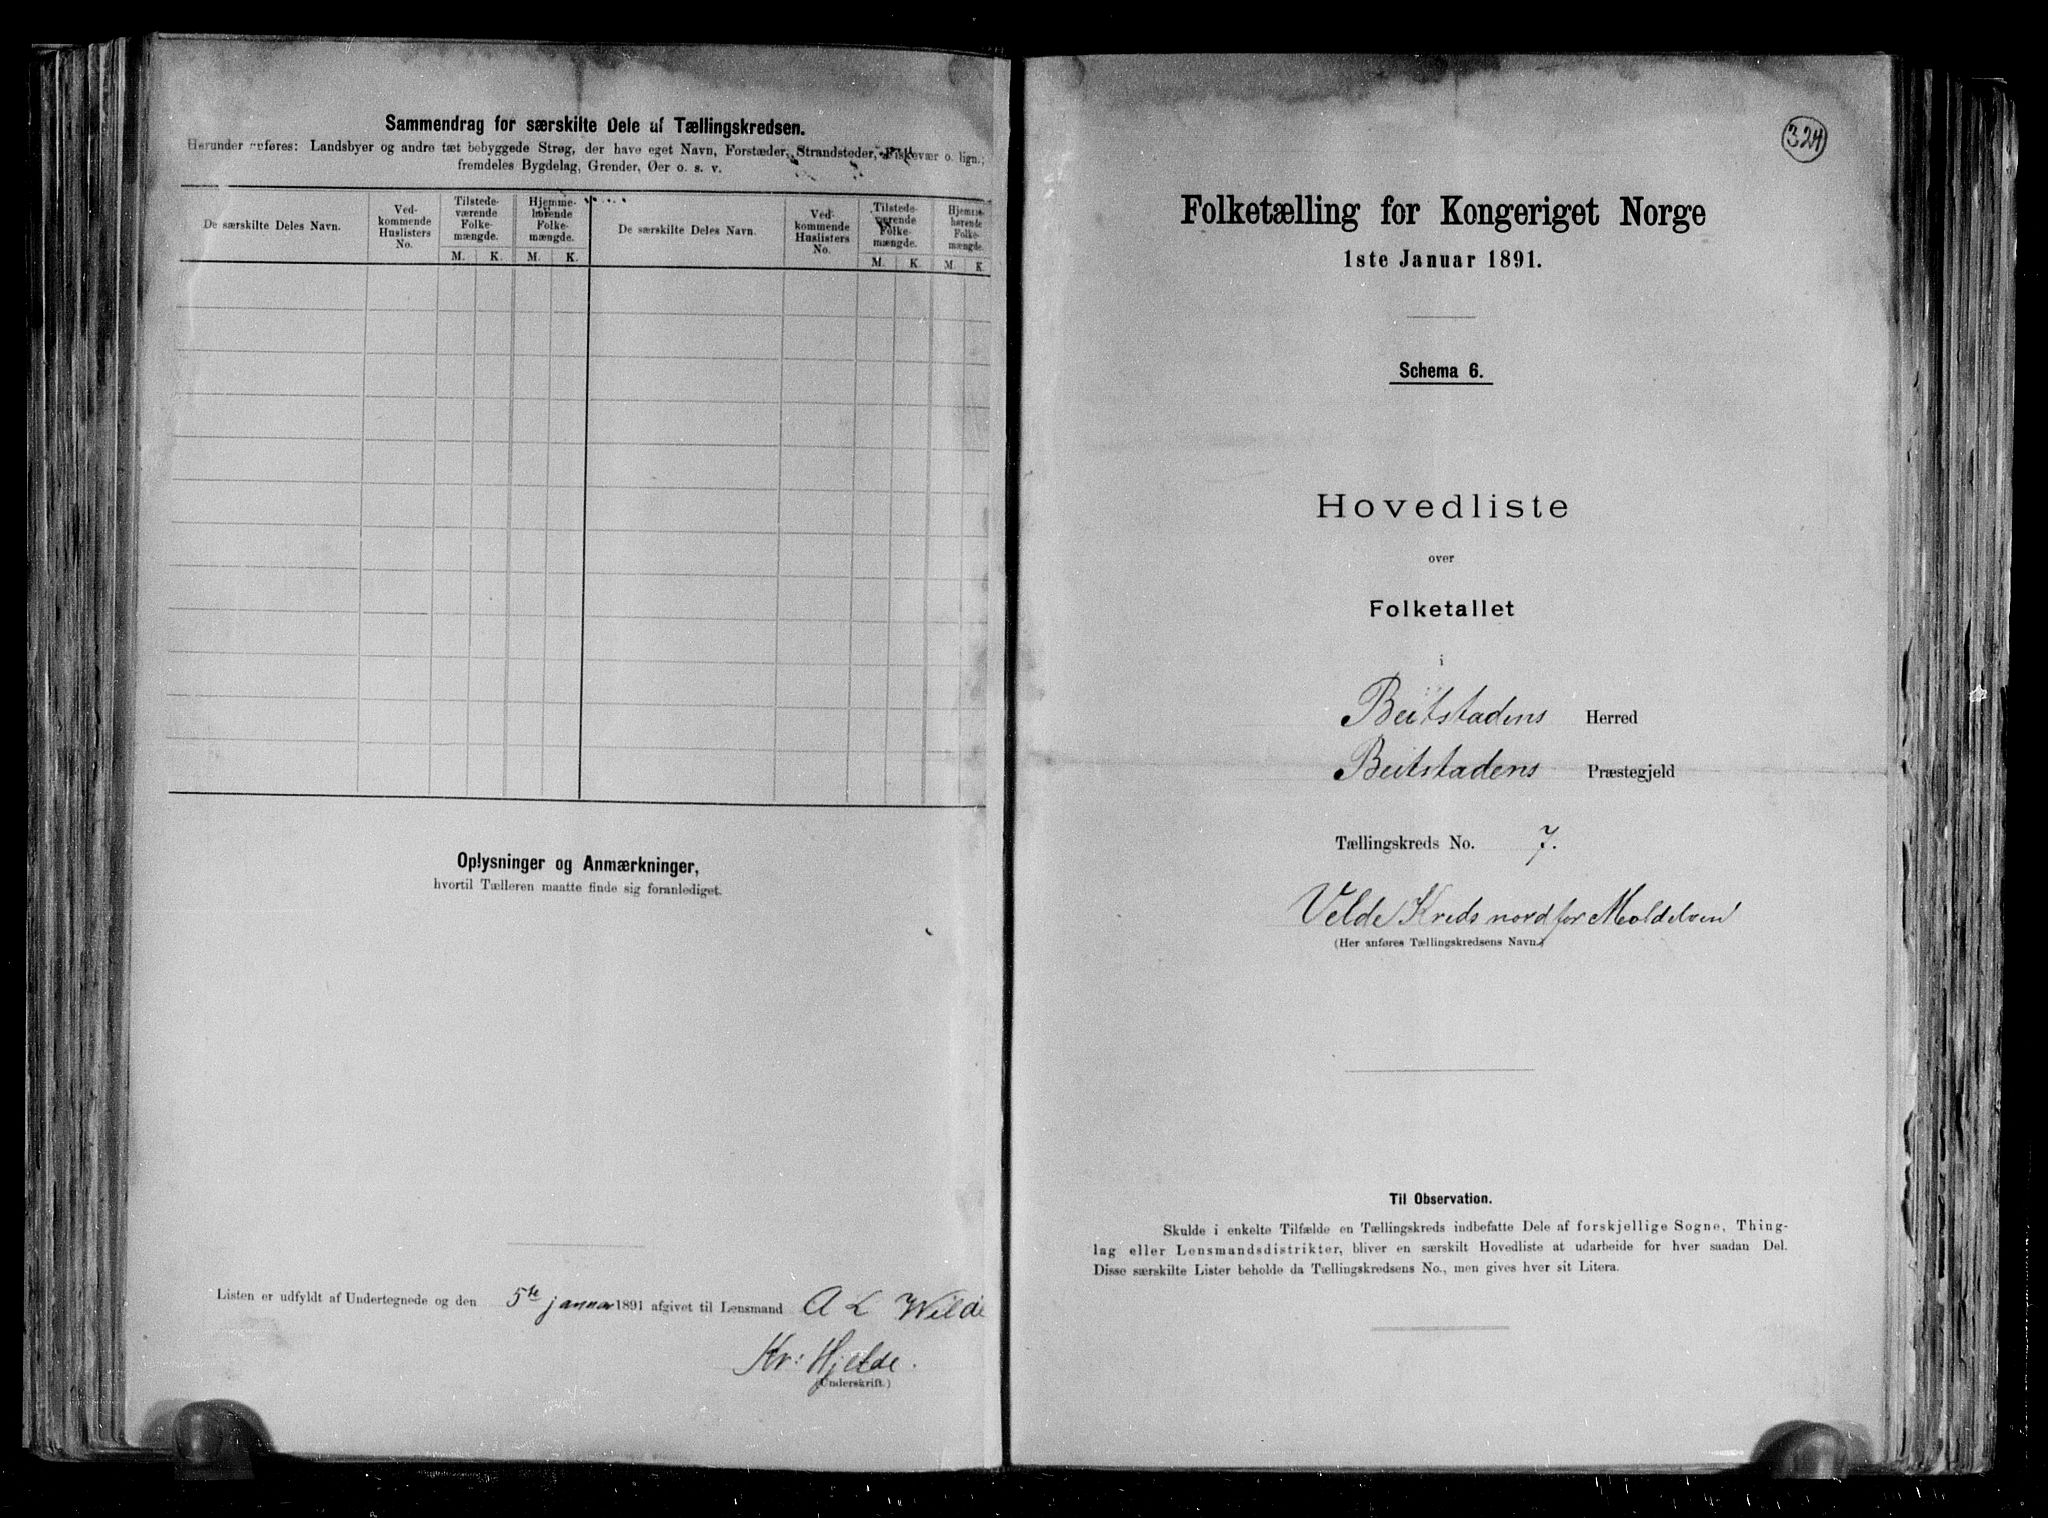 Sammendrag for særskilte Dele af Tællingskredsen.
Herunder anføres: Landsbyer og andre tæt bebyggede Strøg, der have eget Navn, Forstæder, Strandsteder, Fiskevær o. lign.;
fremdeles Bygdelag, Grender, Øer o. s. v.
De særskilte Deles Navn.
Ved-
kommende
Huslisters
No.
Tilstede-
værende
Folke-
mængde.
Hjemme-
hørende
Folke-
mængde.
M. K. M. K.
De særskilte Deles Navn.
Ved-
kommende
Huslisters
No.
Tilstede-
værende
Folke-
mængde.
Hjemme-
hørende
Folke-
mængde.
M. K. M. K.
Oplysninger og Anmærkninger,
hvortil Tælleren maatte finde sig foranlediget.
Listen er udfyldt af Undertegnede og den 5te januar 1891 afgivet til Lensmand A L Wilde
Kr: Hjelde.
(Underskrift.)
324
Folketælling for Kongeriget Norge
1ste Januar 1891.
Schema 6.
Hovedliste
over
Folketallet
i
Beitstadens Herred
Beitstadens Præstegjeld
Tællingskreds No. 7.
Velde Kreds nord for Moldelven
(Her anføres Tællingskredsens Navn.)
Til Observation.
Skulde i enkelte Tilfælde en Tællingskreds indbefatte Dele af forskjellige Sogne, Thing-
lag eller Lensmandsdistrikter, bliver en særskilt Hovedliste at udarbeide for hver saadan Del.
Disse særskilte Lister beholde da Tællingskredsens No., men gives hver sit Litera.